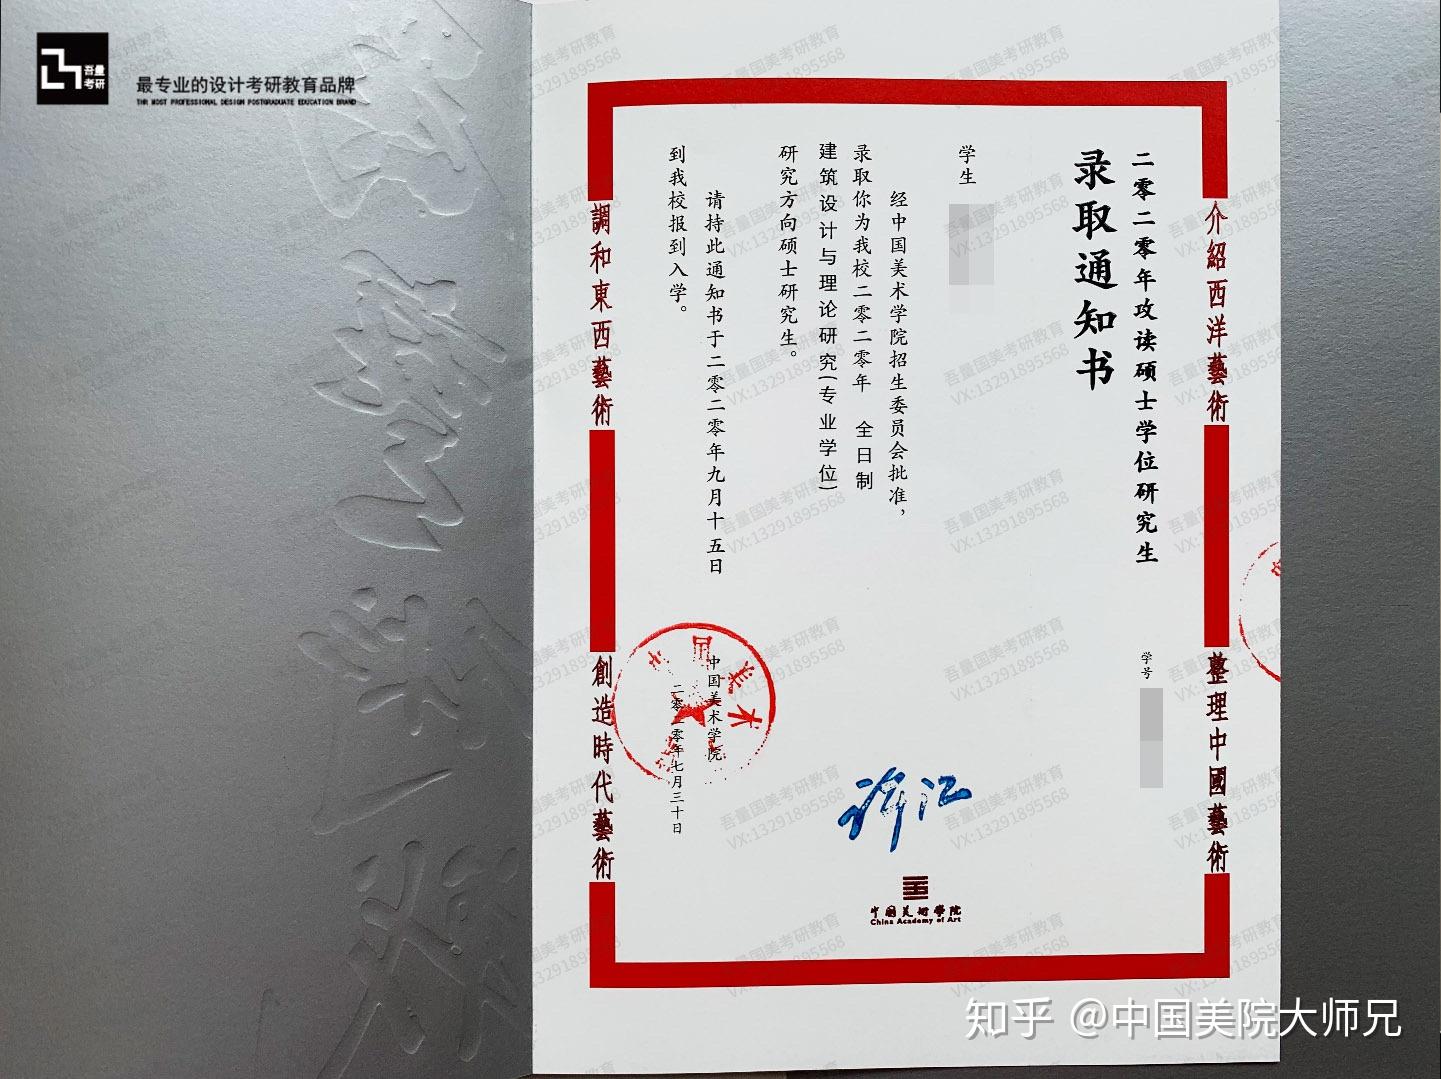 吾量
考研
最专业的设计考研教育品牌
THE MOST PROFESSIONAL DESIGN POSTGRADUATE EDUCATION BRAND
介紹西洋藝術
整理中國藝術
二零二零年攻读硕士学位研究生
录取通知书
学号
学生
经中国美术学院招生委员会批准，
录取你为我校二零二零年 全日制
建筑设计与理论研究(专业学位)
研究方向硕士研究生。
请持此通知书于二零二零年九月十五日
到我校报到入学。
中国美术学院
二零二零年七月三十日
許江
中国美術学院
China Academy of Art
調和東西藝術
創造時代藝術
吾量国美考研教育
VX:13291895568
知乎 @中国美院大师兄